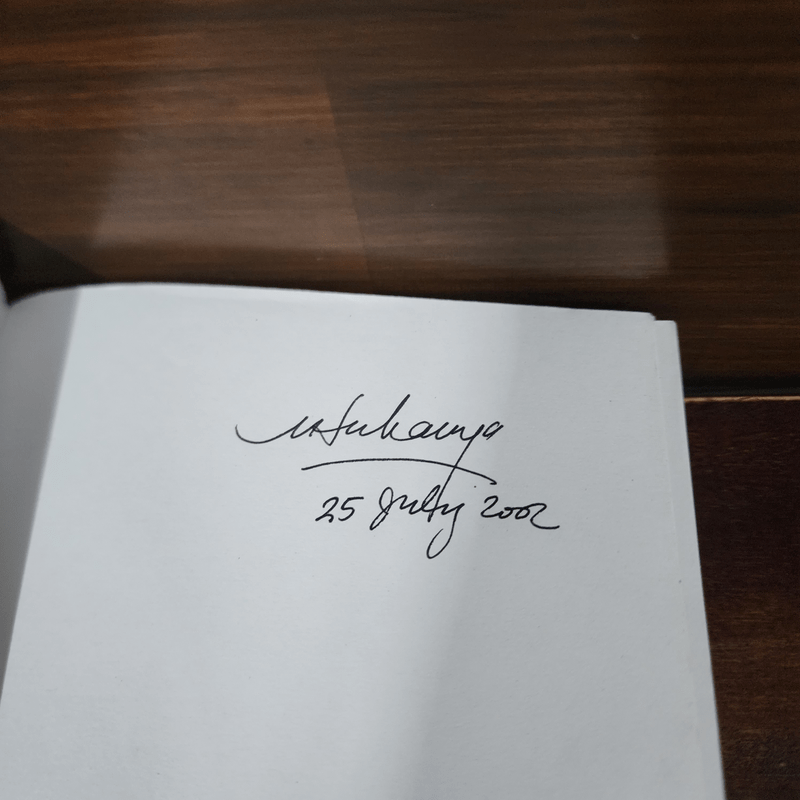 Sukanya
25 July 2002